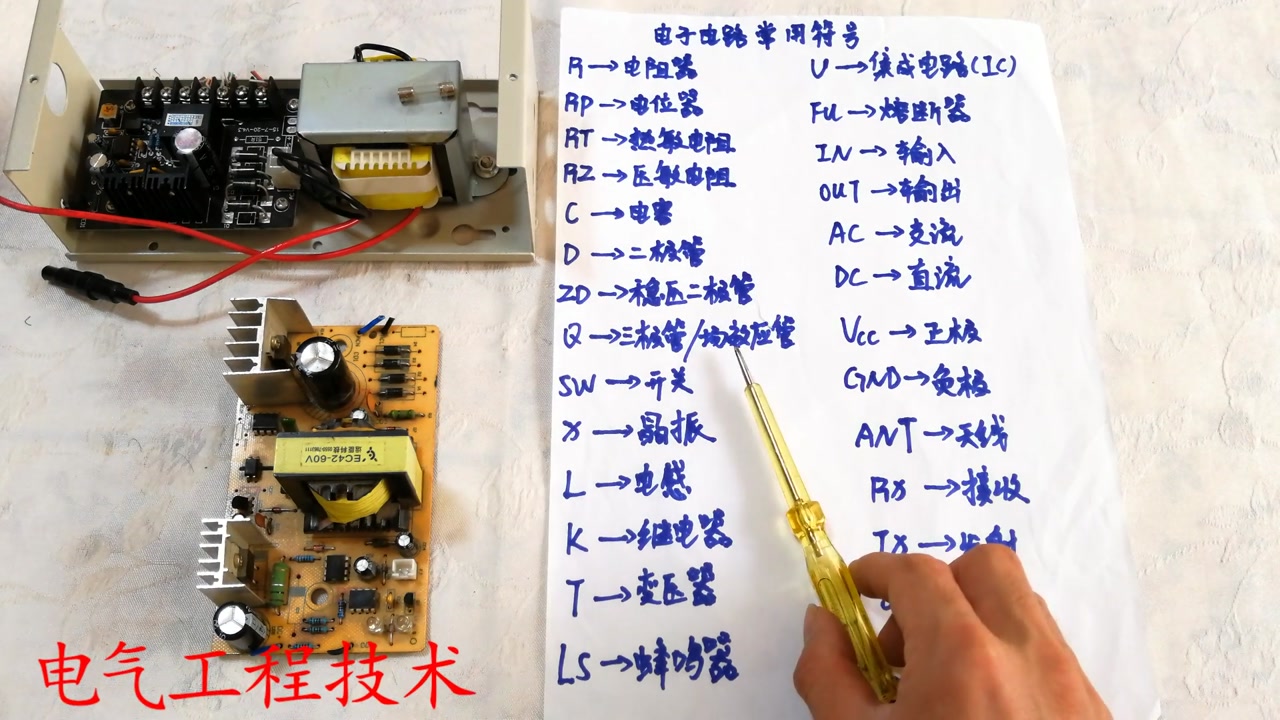 电子电路常用符号
R→电阻器
RP→电位器
RT→热敏电阻
RZ→压敏电阻
C→电容
D→二极管
ZD→稳压二极管
Q→三极管/场效应管
SW→开关
X→晶振
L→电感
K→继电器
T→变压器
LS→蜂鸣器
U→集成电路(IC)
FU→熔断器
IN→输入
OUT→输出
AC→交流
DC→直流
Vcc→正极
GND→负极
ANT→天线
RX→接收
TX→发射
15-7-20-V4.3
EC42-60V
电气工程技术